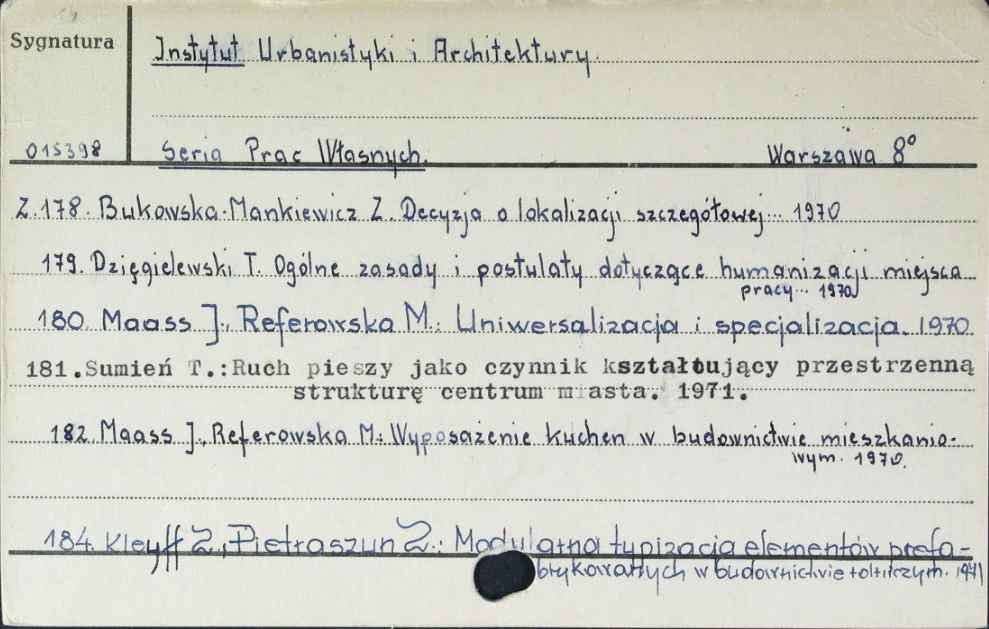 Sygnatura
Instytut Urbanistyki i Architektury.
015398 Seria Prac Własnych. Warszawa 8°
Z. 178. Bukowska-Mankiewicz Z. Decyzja o lokalizacji szczegółowej... 1970
179. Dzięgielewski T. Ogólne zasady i postulaty dotyczące humanizacji miejsca
pracy... 1970
180. Maass J., Referowska M.: Uniwersalizacja i specjalizacja. 1970.
181.Sumień T.:Ruch pieszy jako czynnik kształtujący przestrzenną
strukturę centrum miasta. 1971.
182. Maass J., Referowska M.: Wyposażenie kuchen w budownictwie mieszkanio-
wym. 1970.
184. Kleyff Z., Pietraszun Z.: Modularna typizacja elementów prefa-
brykowanych w budownictwie 1971